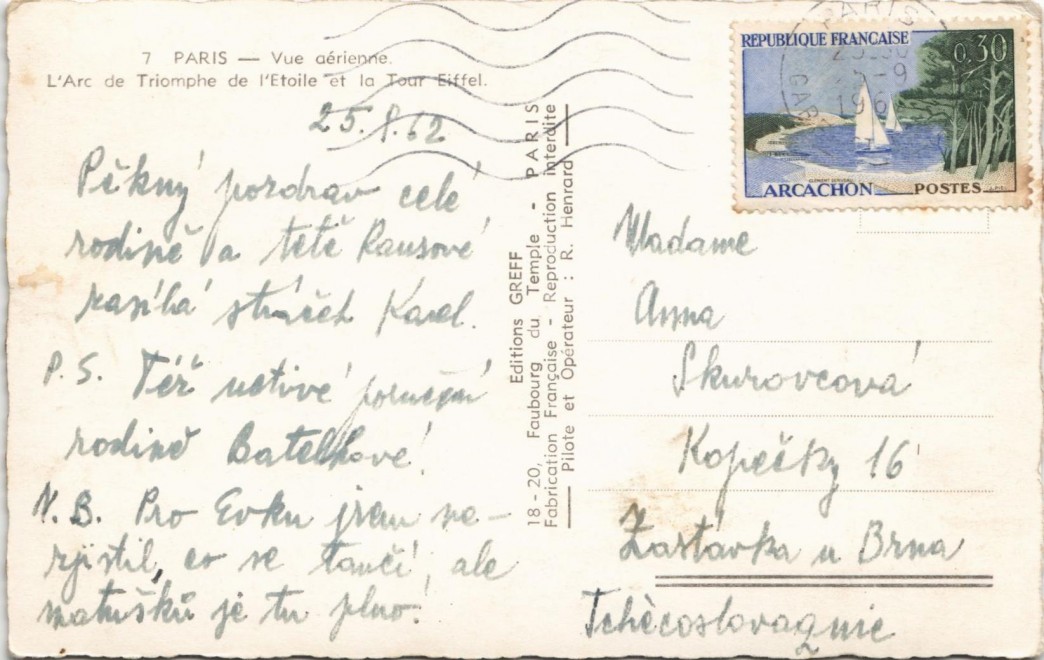 7 PARIS — Vue aérienne.
L'Arc de Triomphe de l'Etoile et la Tour Eiffel.
25.8.62
Pěkný pozdrav celé
rodině a tetě Rausové
zasílá strýček Karel.
P.S. Též uctivé
rodině
N.B. Pro Evku jsem ne-
zjistil, co se tančí, ale
matušků je tu plno!
Editions GREFF
18-20, Faubourg du Temple - PARIS
Fabrication Française - Reproduction interdite
Pilote et Opérateur : R. Henrard
PARIS
GAR
REPUBLIQUE FRANÇAISE
0,30
ARCACHON POSTES
Madame
Anna
Skurovcová
Kopečky 16
Zastávka u Brna
Tchècoslovaquie